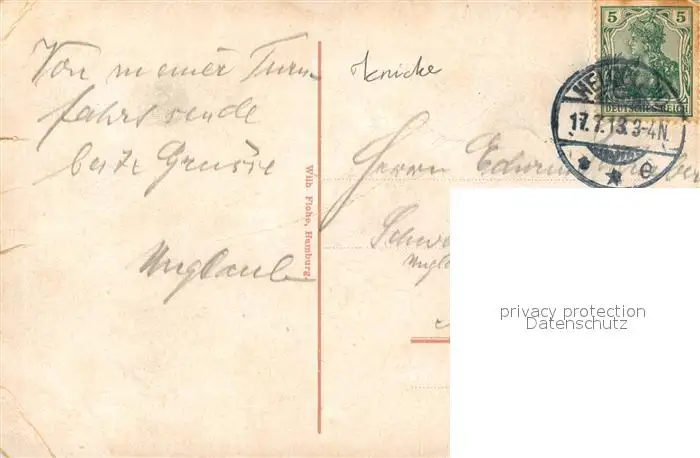 Von meiner Turn-
fahrt sende
beste Grüsse
Unglaub
Wilh. Flohe, Hamburg.
Knicke
5 5
DEUTSCHES REICH
17.7.13.3-4N.
* * e
Herrn Edwin
Schw
Ungl
privacy protection
Datenschutz